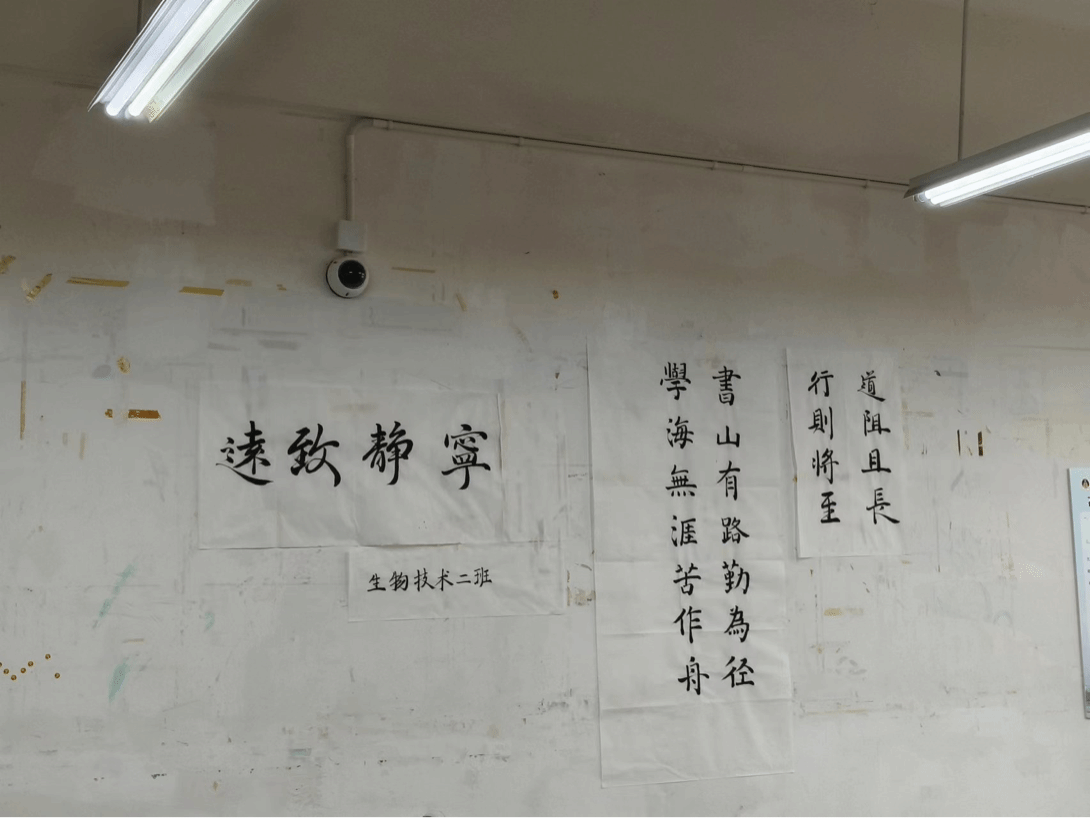 道阻且長
行則將至
書山有路勤為径
學海無涯苦作舟
寧静致遠
生物技术二班